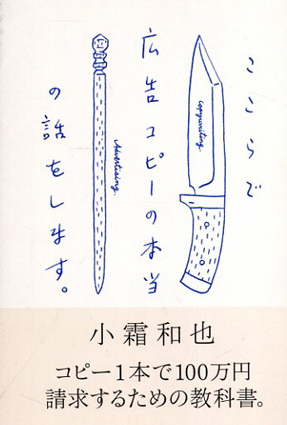 ここらで
広告コピーの本当
の話をします。
copywriting.
Advertising.
小霜和也
コピー1本で100万円
請求するための教科書。